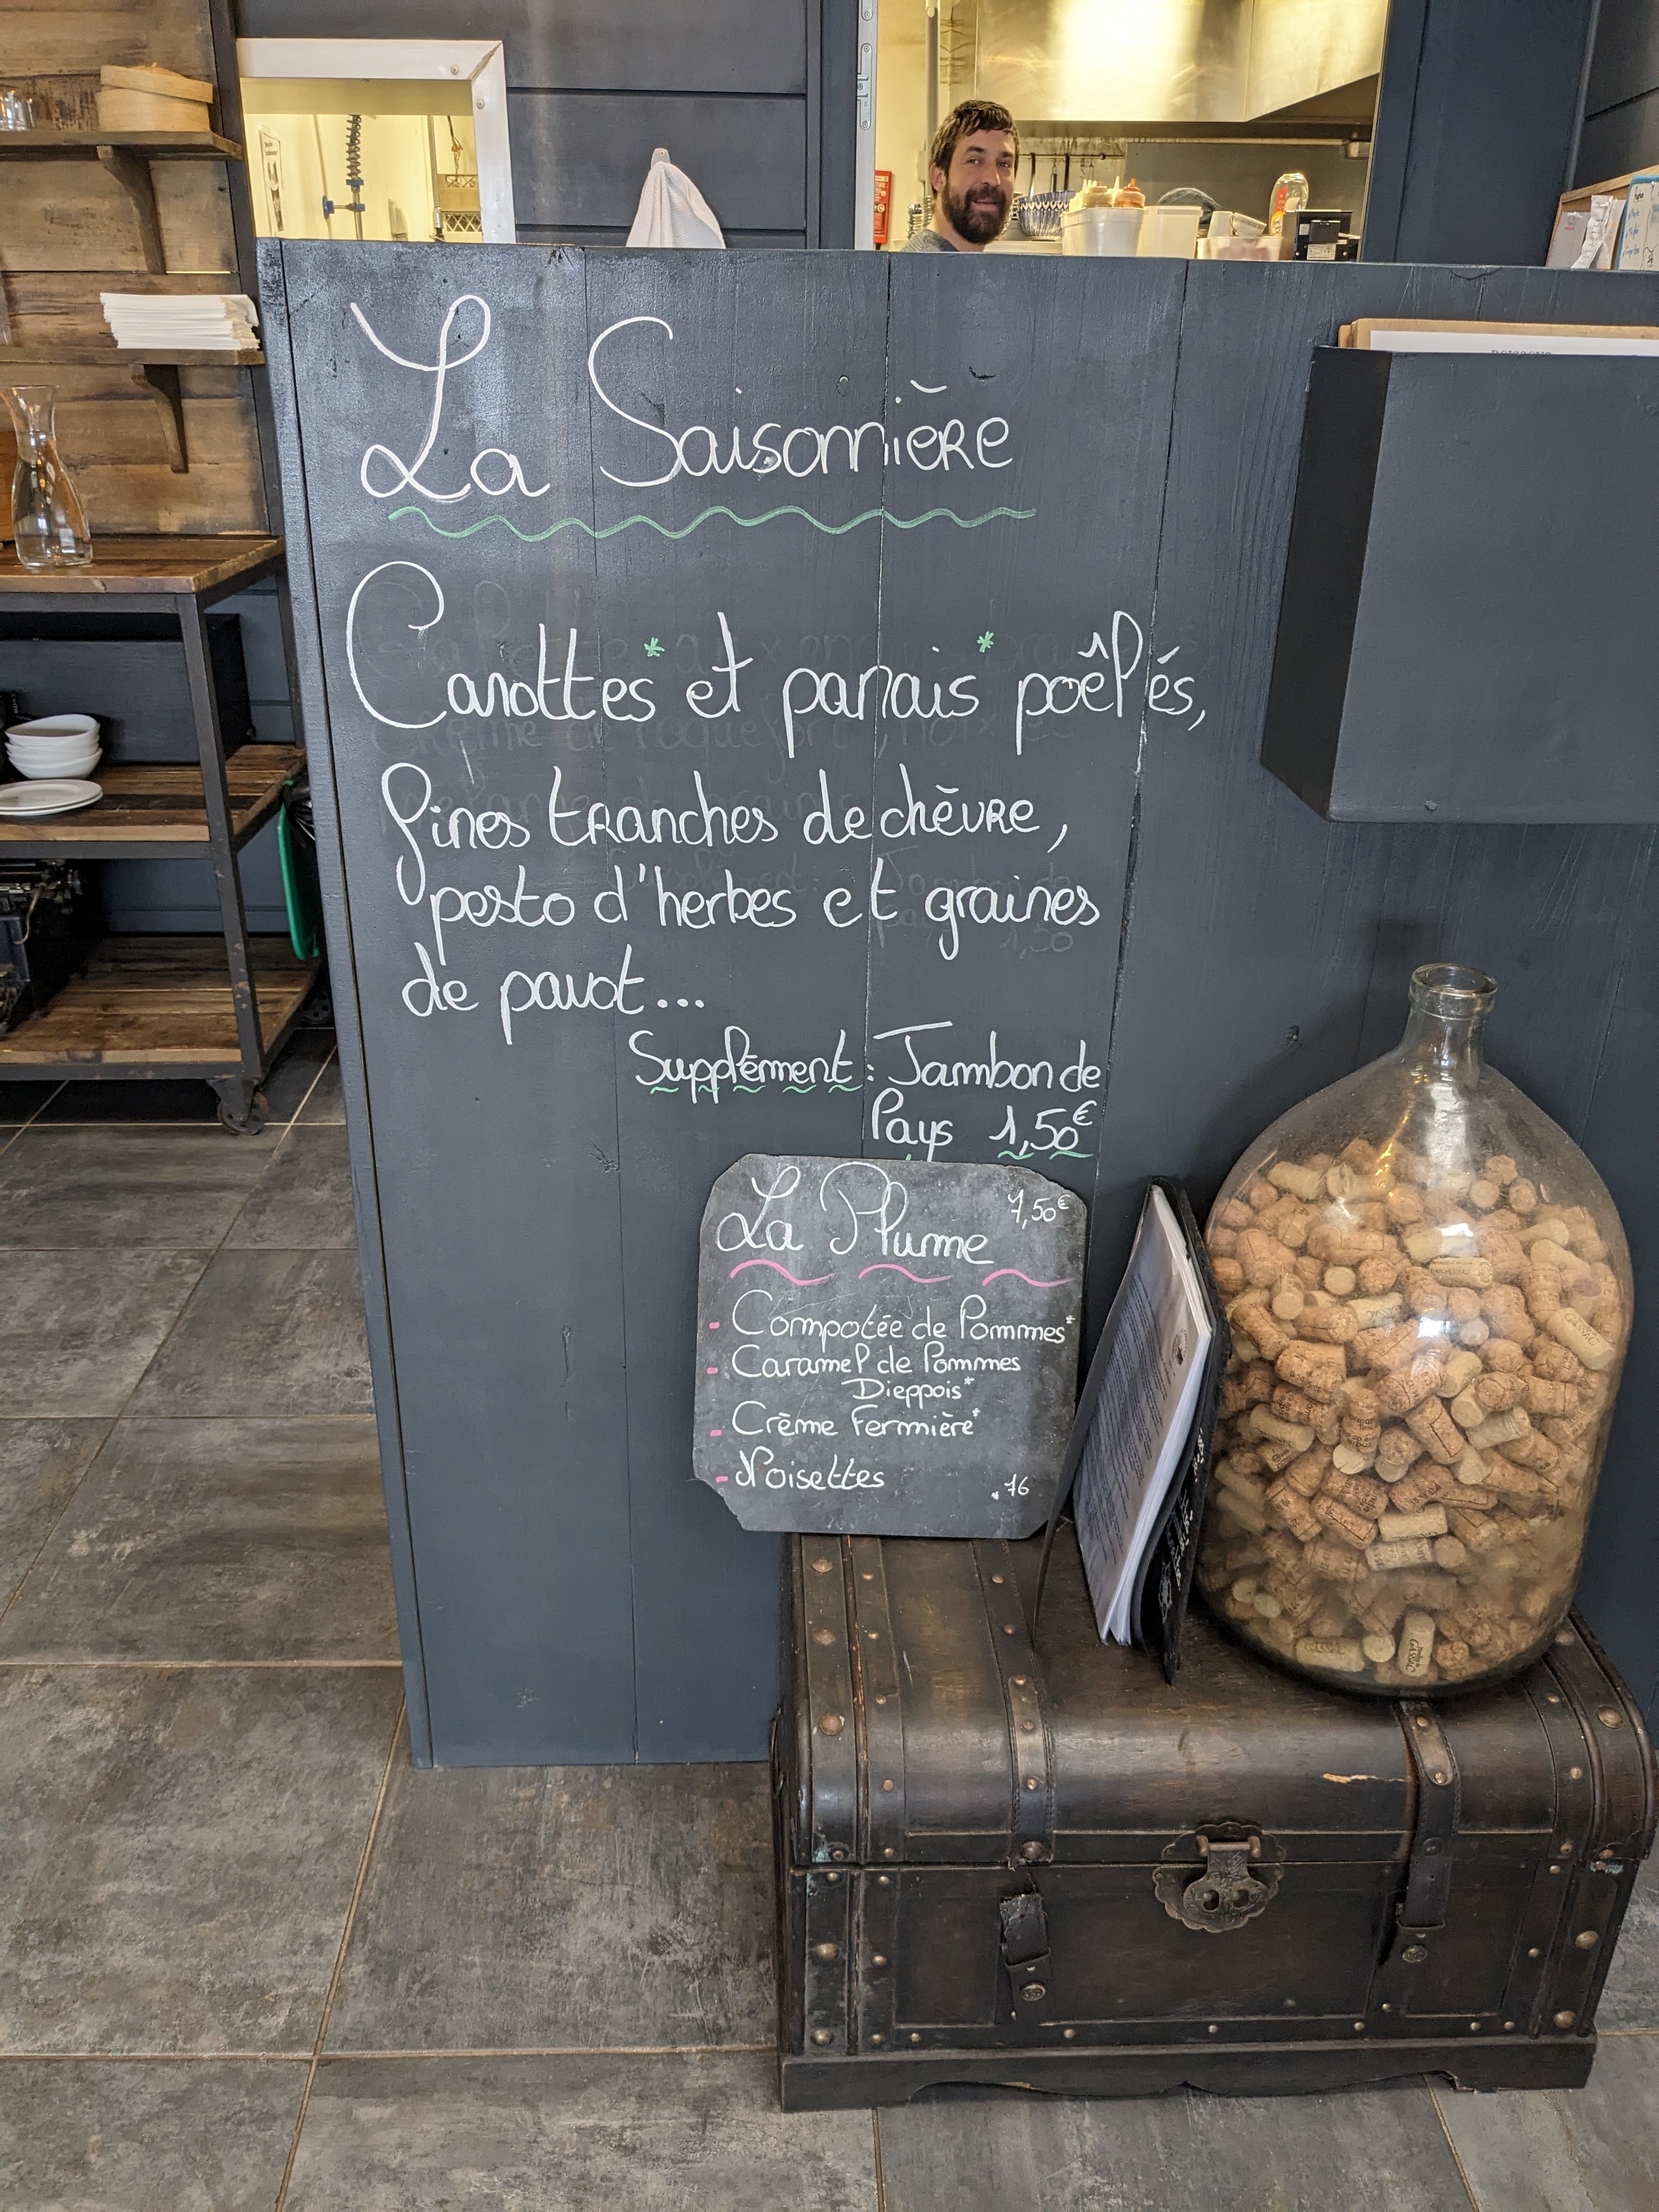 La Saisonnière
Carottes* et panais* poêlés,
fines tranches de chèvre,
pesto d'herbes et graines
de pavot...
Supplément : Jambon de
Pays 1,50€
La Plume 7,50€
- Compotée de Pommes*
- Caramel de Pommes
Dieppois*
- Crème Fermière*
- Noisettes
*76